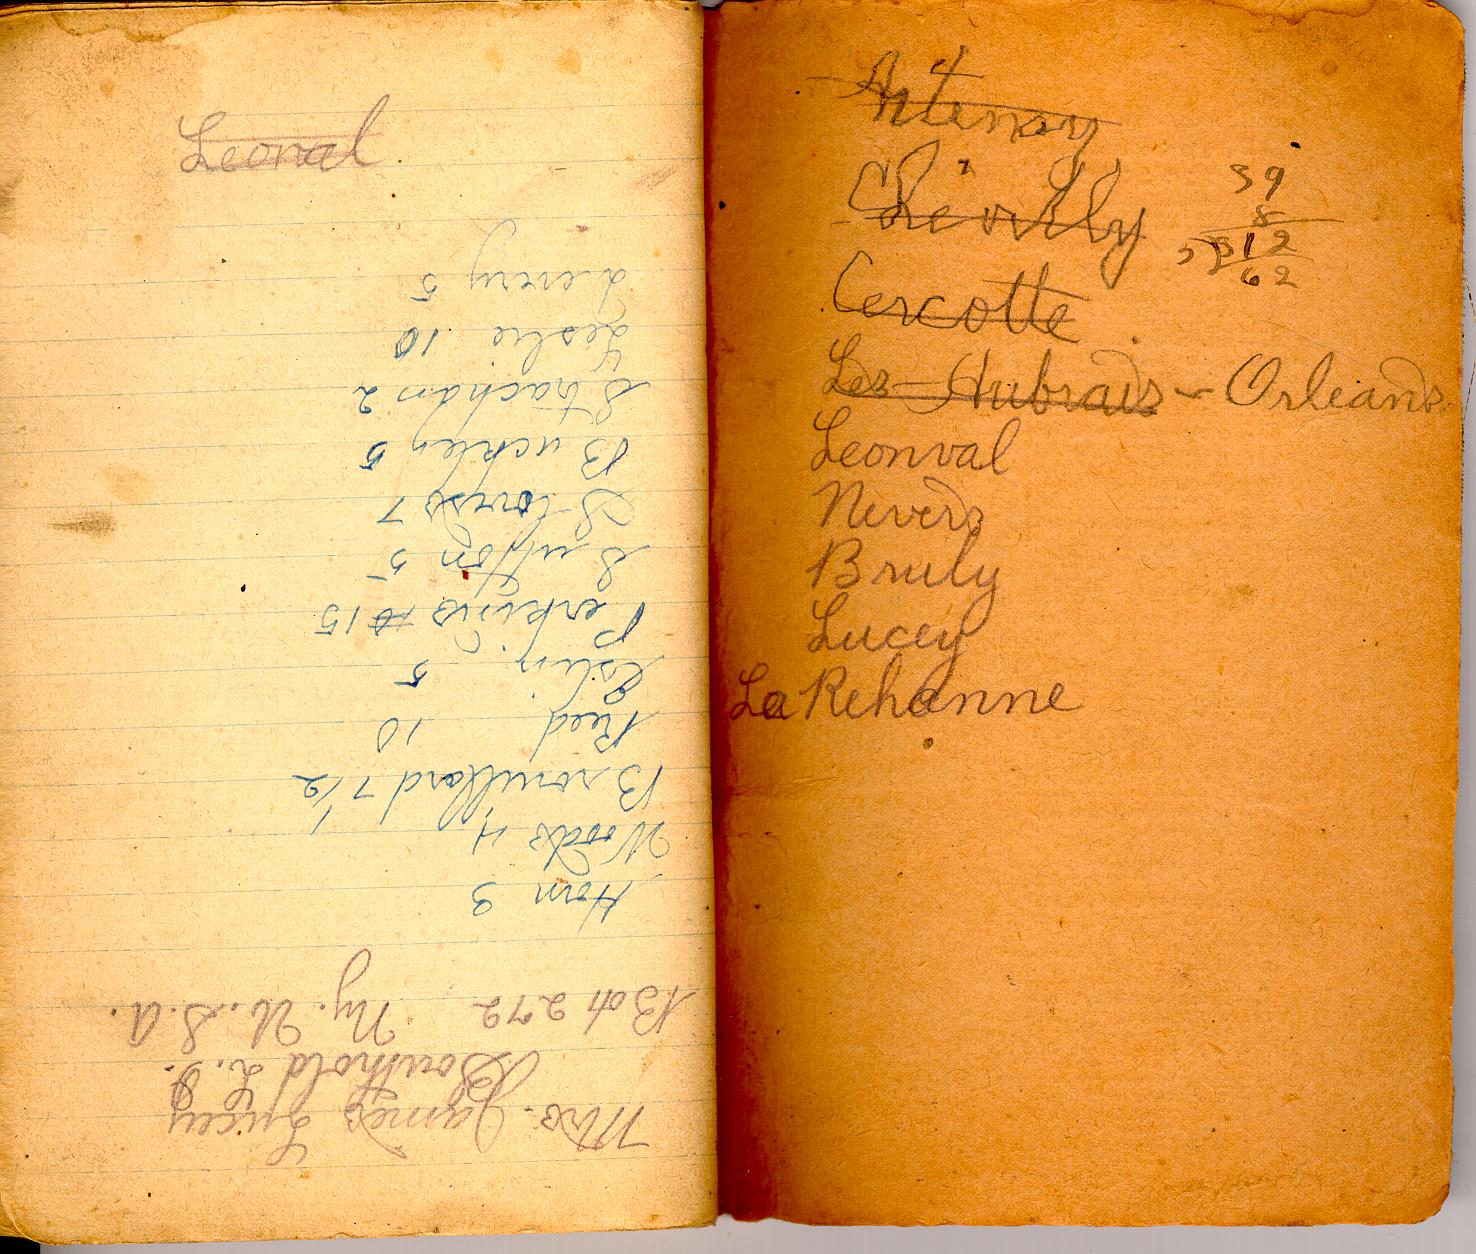 Leonal
Mrs. James Lucey
Southold L.I.
Box 272 Ny. U.S.A.
Horn 3
Woods 4
Brouillard 7 1/2
Reed 10
Eslin 5
Perkins # 15
Sutton 5
Stovrs 7
Buckley 5
Strachan 2
Leslie 10
Levery 5
Artenay
Chevilly
Cercotte
Les-Aubrais - Orleans
Leonval
Nevers
Bruly
Lucey
La Rehanne
39
8
312
62